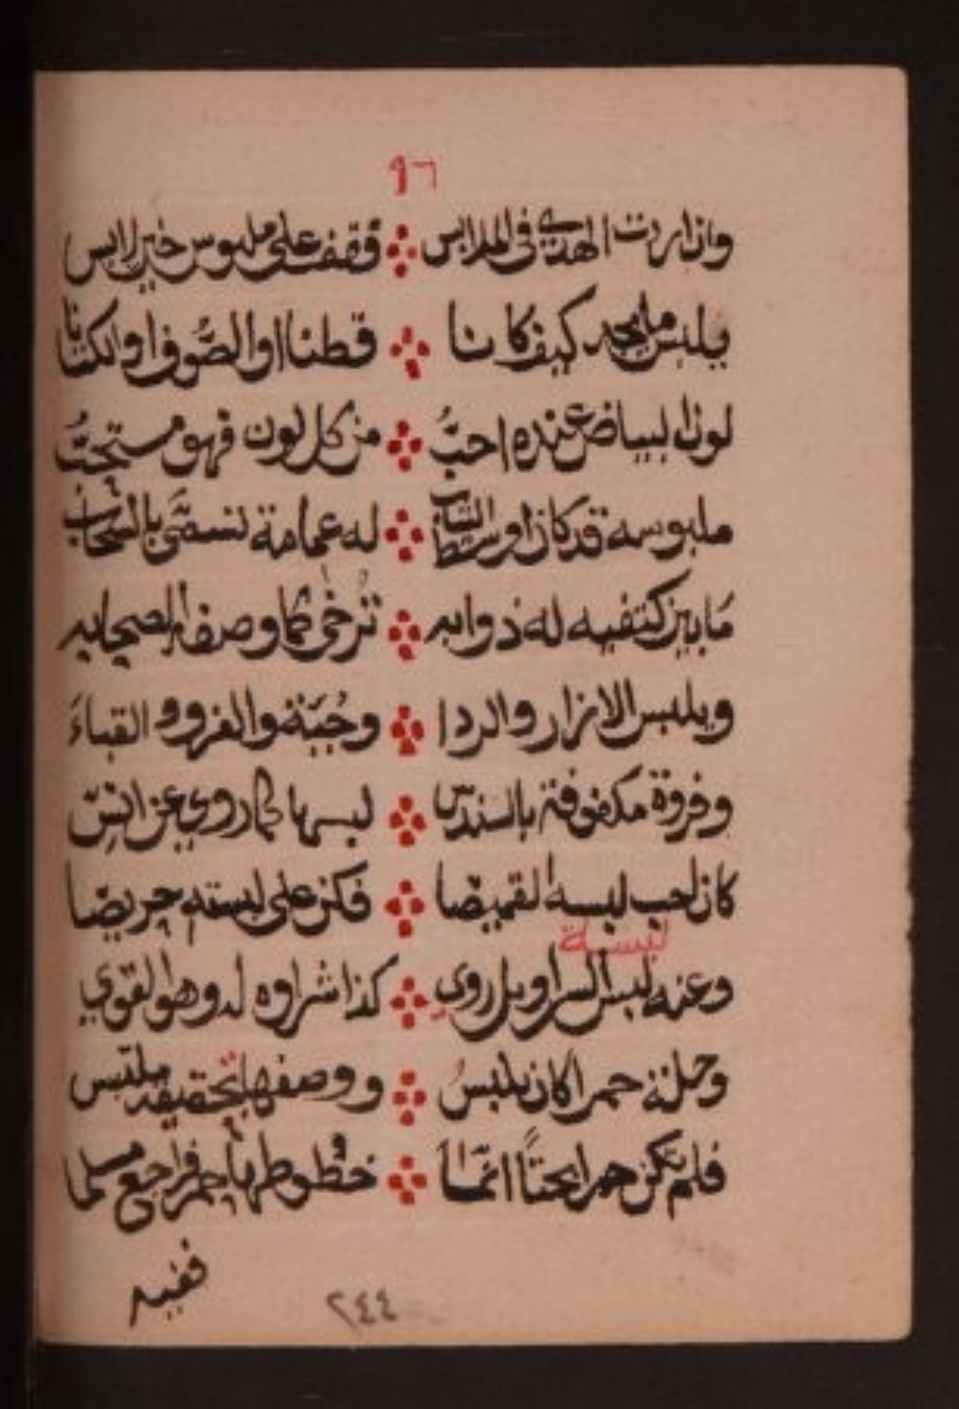 ٩٦
وان اردت الهدي في الملابس فقف على ملبوس خير لابس
يلبس ما يجد كيف كانا قطنا او الصوف او الكتانا
لون البياض عنده احبُّ من كل لون فهو مستحبُّ
ملبوسه قد كان اوسط الثياب له عمامة تسمَّى بالسحاب
مَا بين كتفيه له ذوابه تُرخى كما وصف الصحابه
ويلبس الازار والردا وجُبَّة والفرو والقباءَ
وفروة مكفوفة بالسندس لبسها كما روي عن انس
كان احب لبسه القميصا فكن على لبسته حريصا
لبسة
وعنه لبس السراويل روي كذا شراوه له وهو القوي
وحلة حمرا كان يلبسُ ووصفها تحقيقه ملتبس
فلم تكن حمرا بحتًا انمَّا خطوطها حمر فراجع مسلما
ففيه
٢٤٤